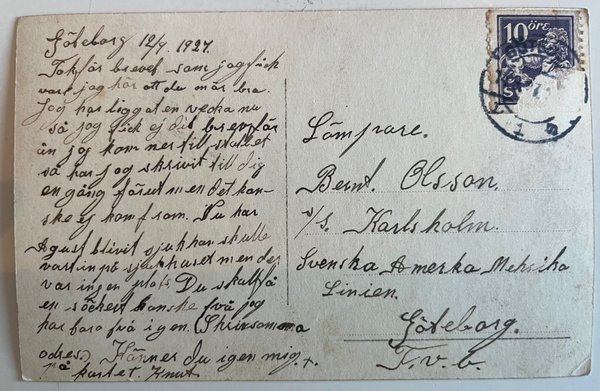 Göteborg 12/9. 1927.
Tak för brevet som jag fick
vart jag hör att du mår bra.
Jog har liggat en vecka nu
så jog fick ej dit brev för
än jog kom ner till stallet
så har jog skrivit till dig
en gång förut men det kan-
ske ej kom fram. Du har
Agust blivit sjuk han skulle
vart in på sjuckhuset men der
var ingen plats Du skall få
en söcken kanske två jog
har bara två igen. (Skriv samma
adres.) Känner du igen mig. +.
på kortet. Knut
10 ÖRE
Lämpare.
Bernt. Olsson.
s/s. Karlsholm.
Svenska Amerka Meksika
Linien.
Göteborg.
T.v.b.